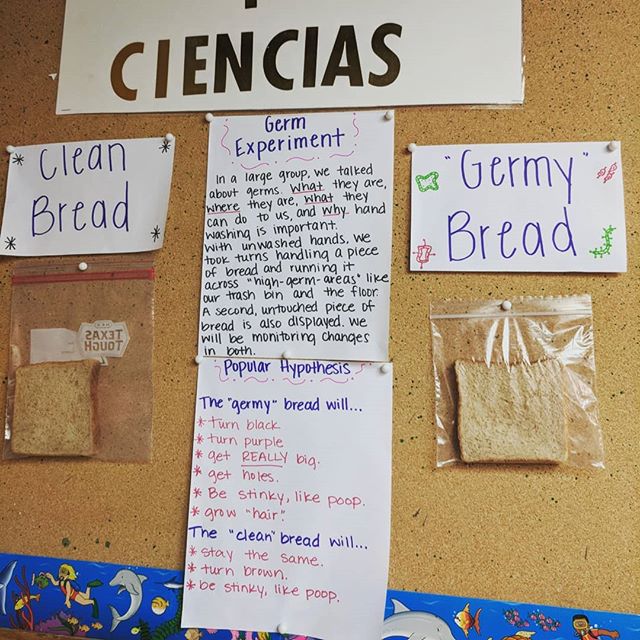 CIENCIAS
Clean
Bread
Germ
Experiment
In a large group, we talked
about germs. What they are,
where they are, what they
can do to us, and why hand
washing is important.
With unwashed hands, we
took turns handling a piece
of bread and running it
across "high-germ-areas" like
our trash bin and the floor.
A second, untouched piece of
bread is also displayed. We
will be monitoring changes
in both.
"Germy"
Bread
TEXAS
TOUGH
Popular Hypothesis
The "germy" bread will...
* turn black
* turn purple
* get REALLY big.
* get holes.
* Be stinky, like poop.
* grow "hair".
The "clean" bread will...
* stay the same.
* turn brown.
* be stinky, like poop.